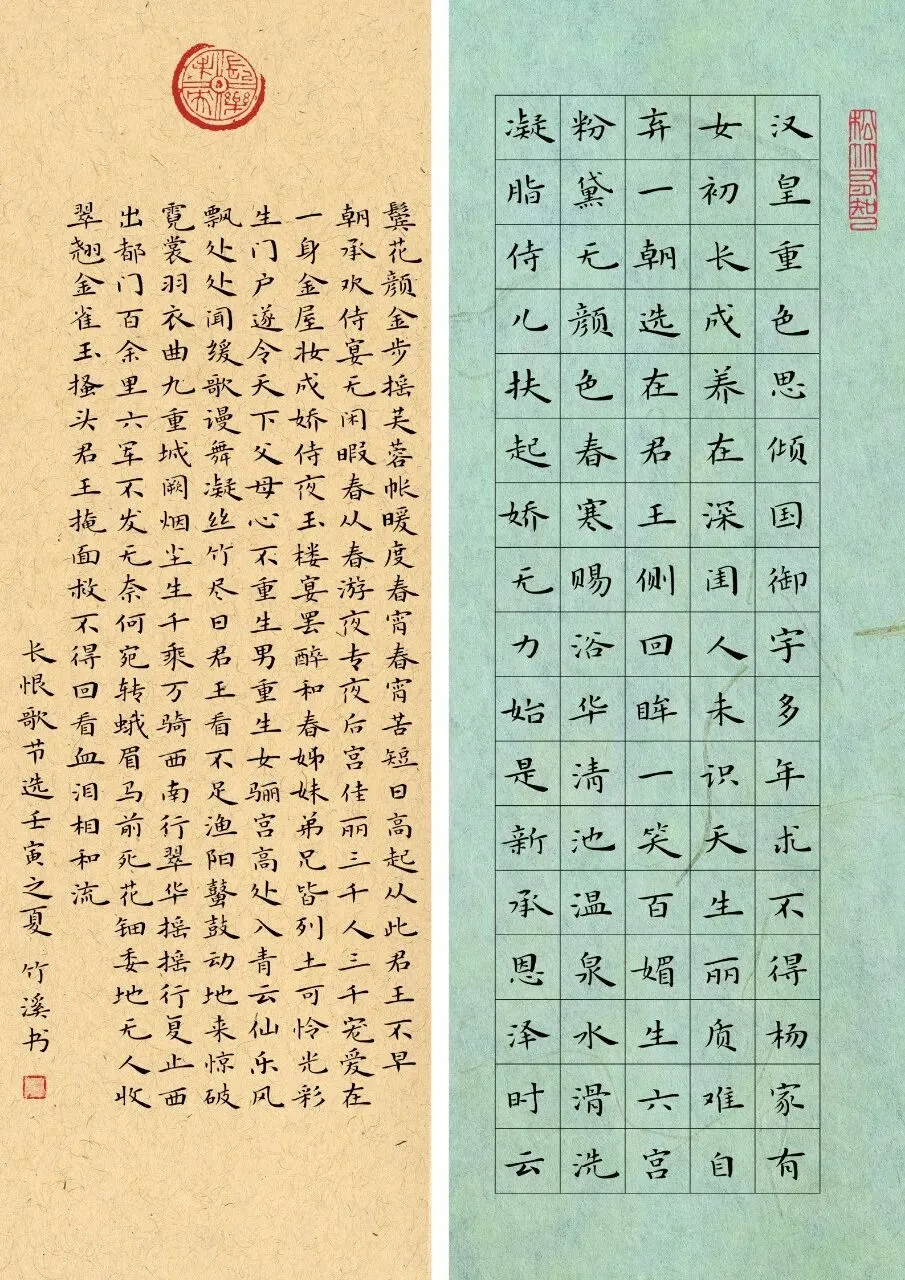 汉皇重色思倾国御宇多年求不得杨家有
女初长成养在深闺人未识天生丽质难自
弃一朝选在君王侧回眸一笑百媚生六宫
粉黛无颜色春寒赐浴华清池温泉水滑洗
凝脂侍儿扶起娇无力始是新承恩泽时云
長樂未央
鬓花颜金步摇芙蓉帐暖度春宵春宵苦短日高起从此君王不早
朝承欢侍宴无闲暇春从春游夜专夜后宫佳丽三千人三千宠爱在
一身金屋妆成娇侍夜玉楼宴罢醉和春姊妹弟兄皆列土可怜光彩
生门户遂令天下父母心不重生男重生女骊宫高处入青云仙乐风
飘处处闻缓歌谩舞凝丝竹尽日君王看不足渔阳鼙鼓动地来惊破
霓裳羽衣曲九重城阙烟尘生千乘万骑西南行翠华摇摇行复止西
出都门百余里六军不发无奈何宛转蛾眉马前死花钿委地无人收
翠翘金雀玉搔头君王掩面救不得回看血泪相和流
长恨歌节选壬寅之夏 竹溪书